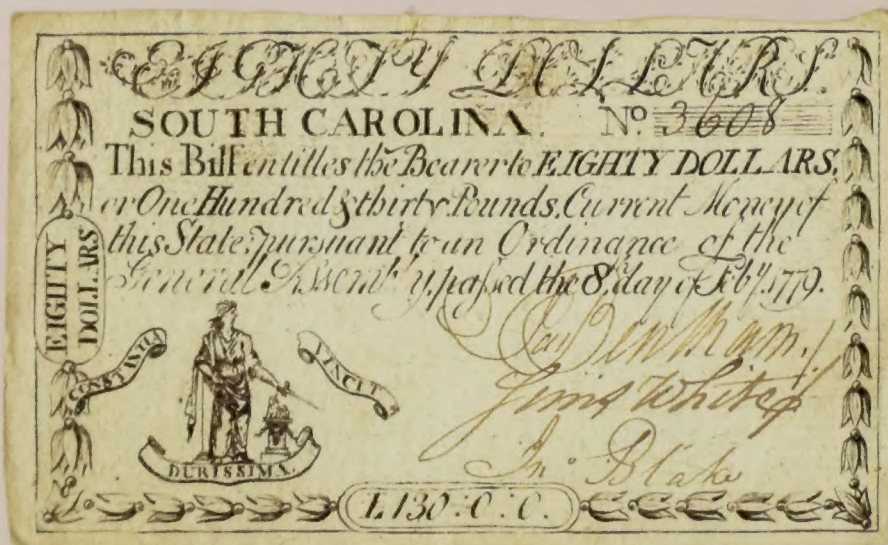 EIGHTY DOLLARS.
SOUTH CAROLINA. No. 3608
This Bill entitles the Bearer to EIGHTY DOLLARS,
or One Hundred & thirty Pounds, Current Money of
this State, pursuant to an Ordinance of the
General Assembly, passed the 8, day of Feby. 1779.
EIGHTY
DOLLARS
CONSTANTIA
VINCIT
DURISSIMA.
Denham
White
Jno. Blake
L130:0:0.